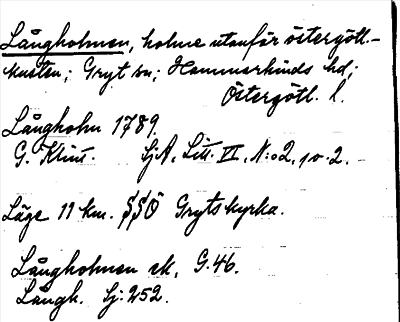 Långholmen, holme utanför östergötl.-
kusten; Gryt sn; Hammarkinds hd;
Östergötl. l.
Långholm 1789.
G. Klint. SjA, Litt. VI, N:o 2, 10-2.
Läge 11 km. SSÖ Gryts kyrka.
Långholmen ek, G. 46.
Långh. Sj: 252.